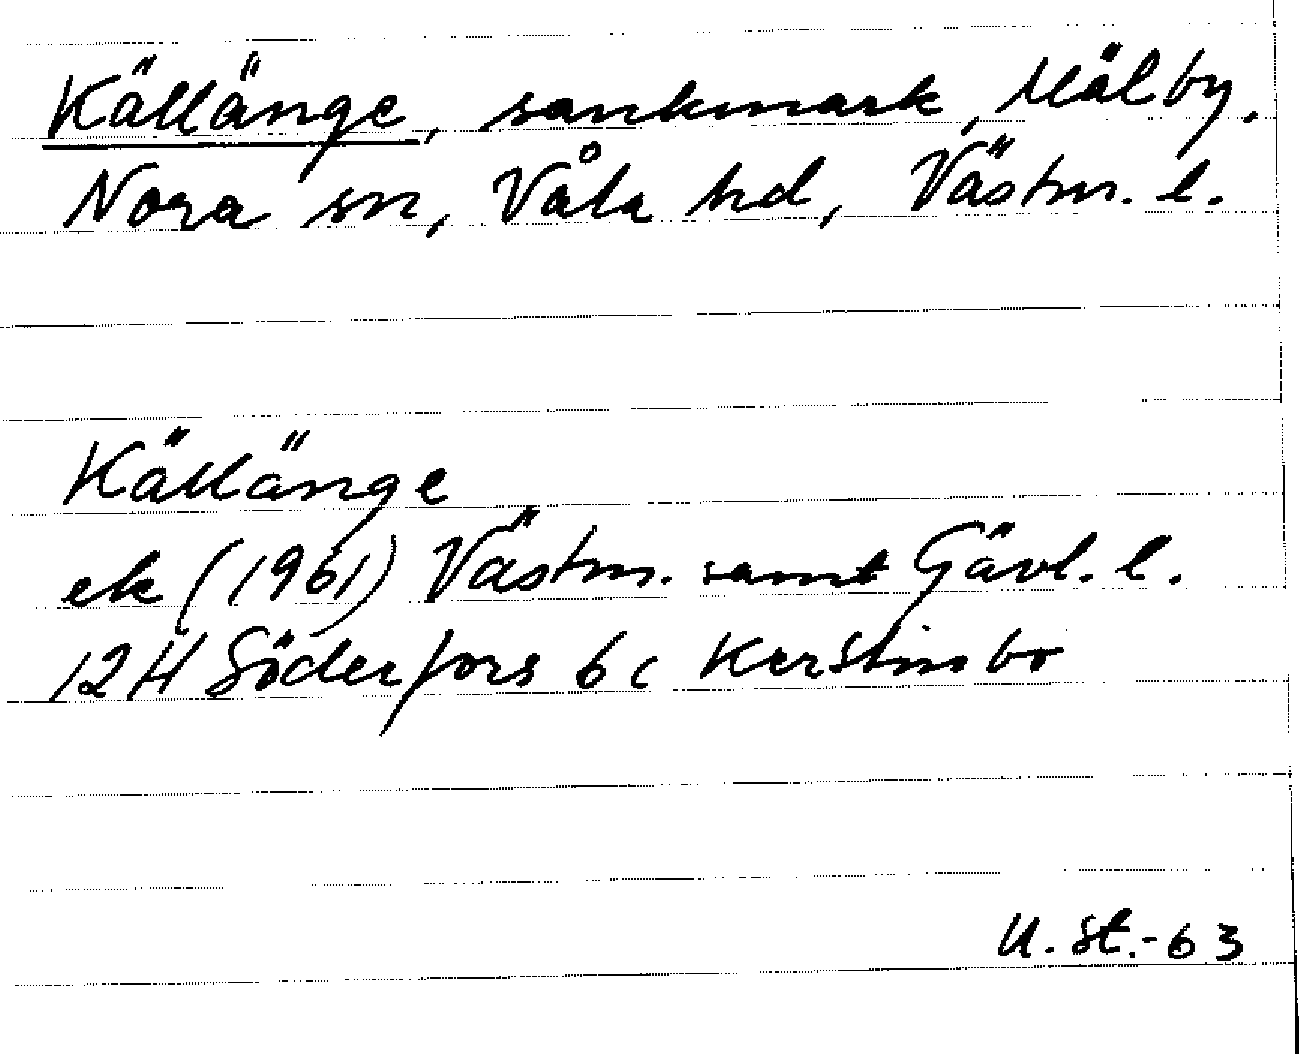 Källänge, sankmark, Mälby.
Nora sn, Våla hd, Västm. l.
Källänge
ek (1961) Västm. samt Gävl. l.
12H Söderfors 6c Kerstinbo
U. St. -63